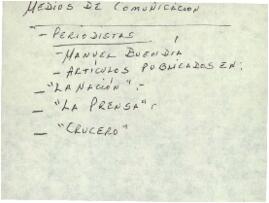 MEDIOS DE COMUNICACION
- PERIODISTAS,
- MANUEL BUENDIA
- ARTÍCULOS PUBLICADOS EN:
- "LA NACIÓN".-
- "LA PRENSA".
- "CRUCERO"